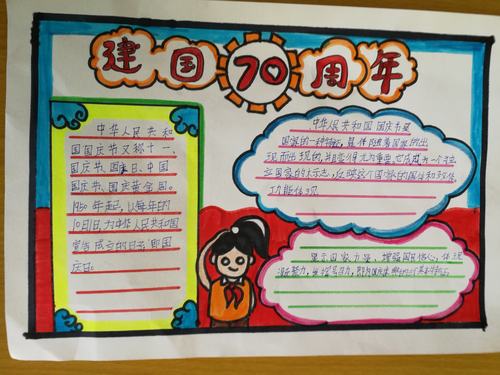 建国70周年
中华人民共和
国国庆节又称十一、
国庆节、国庆日、中国
国庆节、国庆黄金周。
1950年起,以每年的
10月1日,为中华人民共和国
宣告成立的日子,即国
庆日。
中华人民共和国国庆节是
国家的一种特征,是伴随着国家的出
现而出现的,相变得尤为重要,它成为一个独
立国家的标志,反映这个国家的国体和政体,
功能体现
显示国家力量、增强国民信心,体现
凝聚力,发挥号召力,即为国庆庆典的三个基本特征。